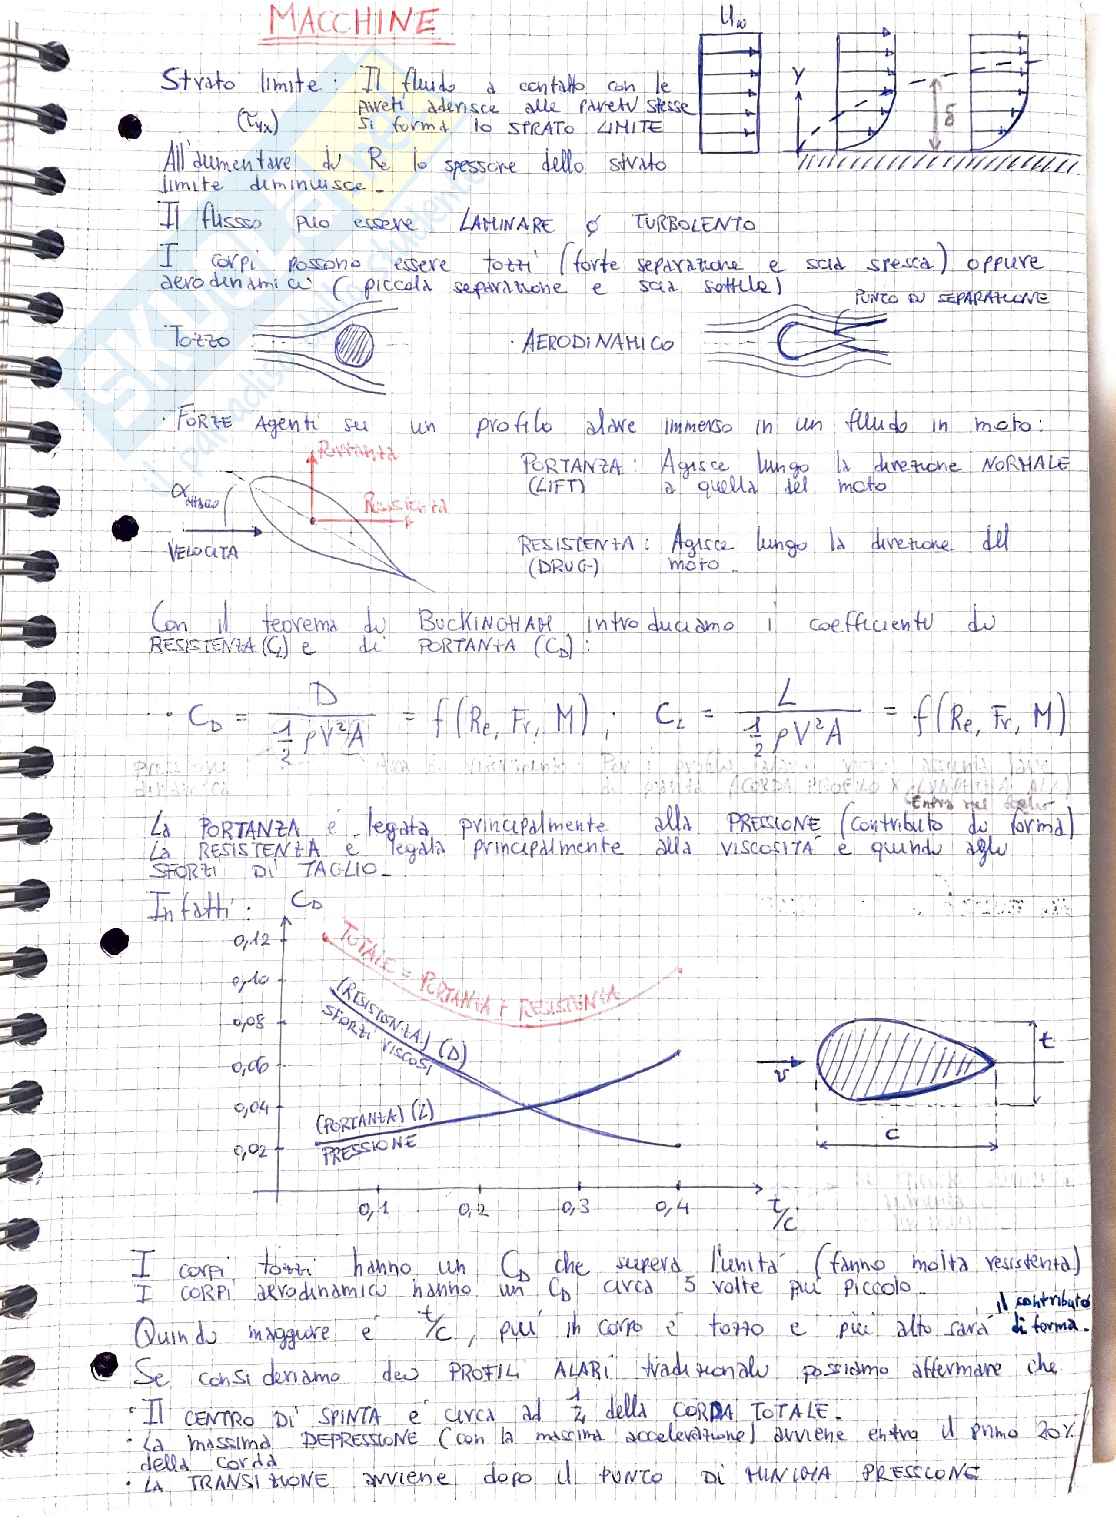 MACCHINE
U∞
Strato limite: Il fluido a contatto con le
pareti aderisce alle pareti stesse
(τyx) si forma lo STRATO LIMITE
Y
δ
All'aumentare di Re lo spessore dello strato
limite diminuisce.
Il flusso può essere LAMINARE o TURBOLENTO
I corpi possono essere tozzi (forte separazione e scia spessa) oppure
aerodinamici (piccola separazione e scia sottile)
PUNTO DI SEPARAZIONE
Tozzo
· AERODINAMICO
· FORZE Agenti su un profilo alare immerso in un fluido in moto:
Portanza
PORTANZA: Agisce lungo la direzione NORMALE
(LIFT) a quella del moto
α attacco
Resistenza
VELOCITA
RESISTENZA: Agisce lungo la direzione del
(DRUG) moto.
Con il teorema di BUCKINGHAM introduciamo i coefficienti di
RESISTENZA (CL) e di PORTANZA (CD):
· CD = D / ½ ρV²A = f(Re, Fr, M); CL = L / ½ ρV²A = f(Re, Fr, M)
La PORTANZA è legata principalmente alla PRESSIONE (contributo di forma)
La RESISTENZA è legata principalmente alla VISCOSITÀ e quindi agli
SFORZI DI TAGLIO.
Infatti:
CD
0,12
0,10
0,08
0,06
0,04
0,02
TOTALE = PORTANZA + RESISTENZA
(RESISTENZA) (D)
SFORZI VISCOSI
(PORTANZA) (L)
PRESSIONE
0,1 0,2 0,3 0,4 t/c
v
t
c
I corpi tozzi hanno un CD che supera l'unità (fanno molta resistenza)
I CORPI aerodinamici hanno un CD circa 5 volte più piccolo.
Quindi maggiore è t/c, più in corpo è tozzo e più alto sarà il contributo
di forma.
Se consideriamo dei PROFILI ALARI tradizionali possiamo affermare che
· Il CENTRO DI SPINTA è circa ad 1/4 della CORDA TOTALE.
· La massima DEPRESSIONE (con la massima accelerazione) avviene entro il primo 20%
della corda
· LA TRANSIZIONE avviene dopo il PUNTO DI MINIMA PRESSIONE